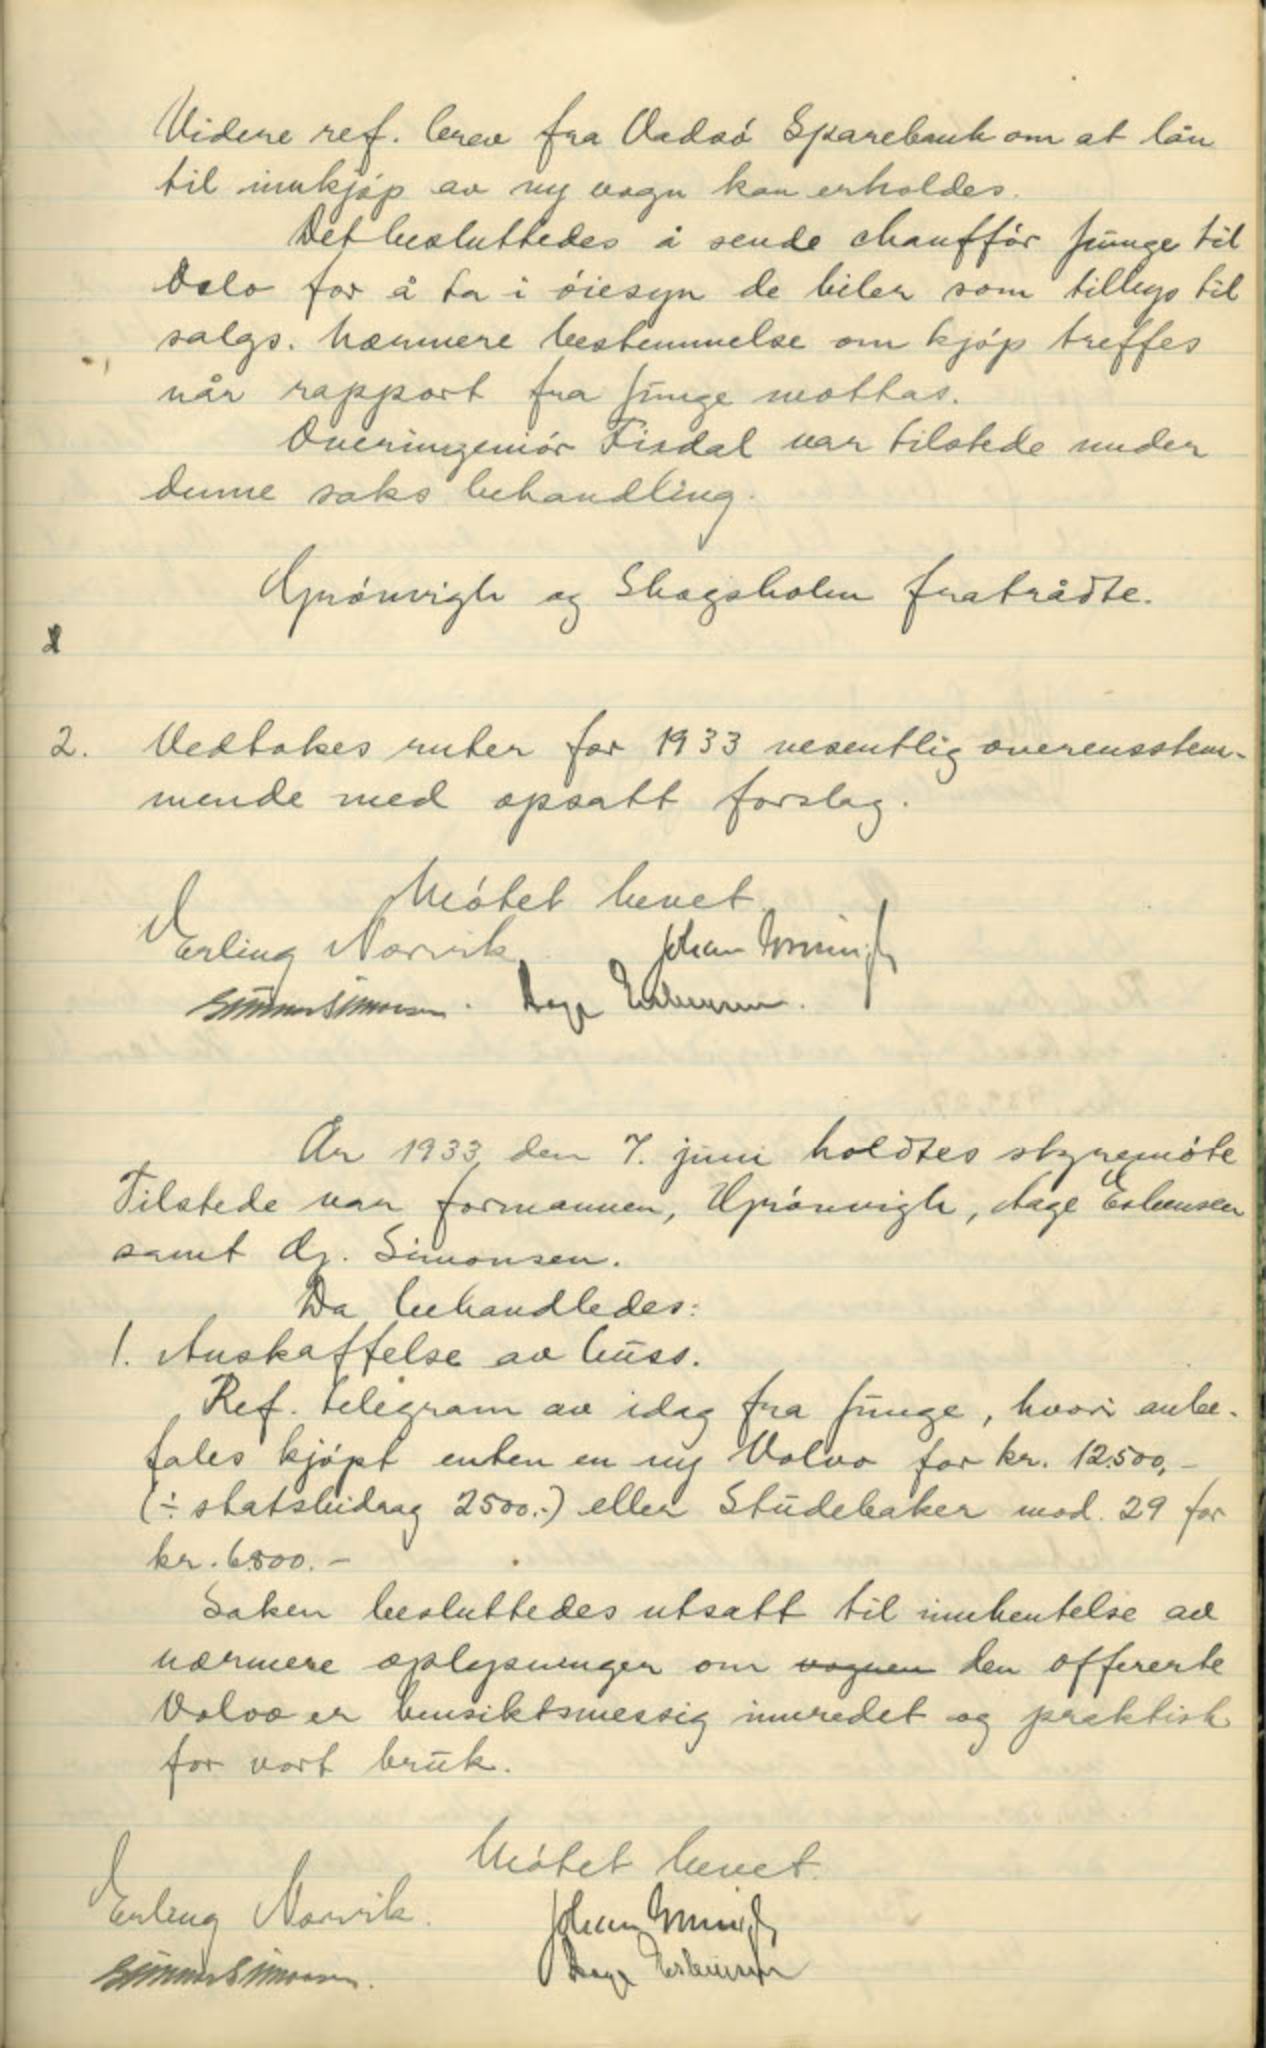 Videre ref. brev fra Vadsø Sparebank om at lån
til innkjøp av ny vogn kan erholdes.
Det besluttedes å sende chauffør Junge til
Oslo for å ta i øiesyn de biler som tilbys til
salgs. Nærmere bestemmelse om kjøp treffes
når rapport fra Junge mottas.
Overingeniør Fisdal var tilstede under
denne saks behandling.
Grønvigh og Skogsholm fratrådte.
2. Vedtokes ruter for 1933 vesentlig overensstem-
mende med opsatt forslag.
Møtet hevet
Erling Norvik Johan Grønvigh
Gunnar Simonsen. Aage Esbensen.
År 1933, den 7. juni holdtes styremøte
Tilstede var formannen, Grønvigh, Aage Esbensen
samt dr. Simonsen.
Da behandledes:
1. Anskaffelse av buss.
Ref. telegram av idag fra Junge, hvori anbe-
fales kjøpt enten en ny Volvo for kr. 12.500,-
(÷ statsbidrag 2500.-) eller Studebaker mod. 29 for
kr. 6.800.-
Saken besluttedes utsatt til innhentelse av
nærmere oplysninger om vognen den offererte
Volvo er hensiktsmessig innredet og praktisk
for vort bruk.
Møtet hevet.
Erling Norvik. Johan Grønvigh
Gunnar Simonsen. Aage Esbensen